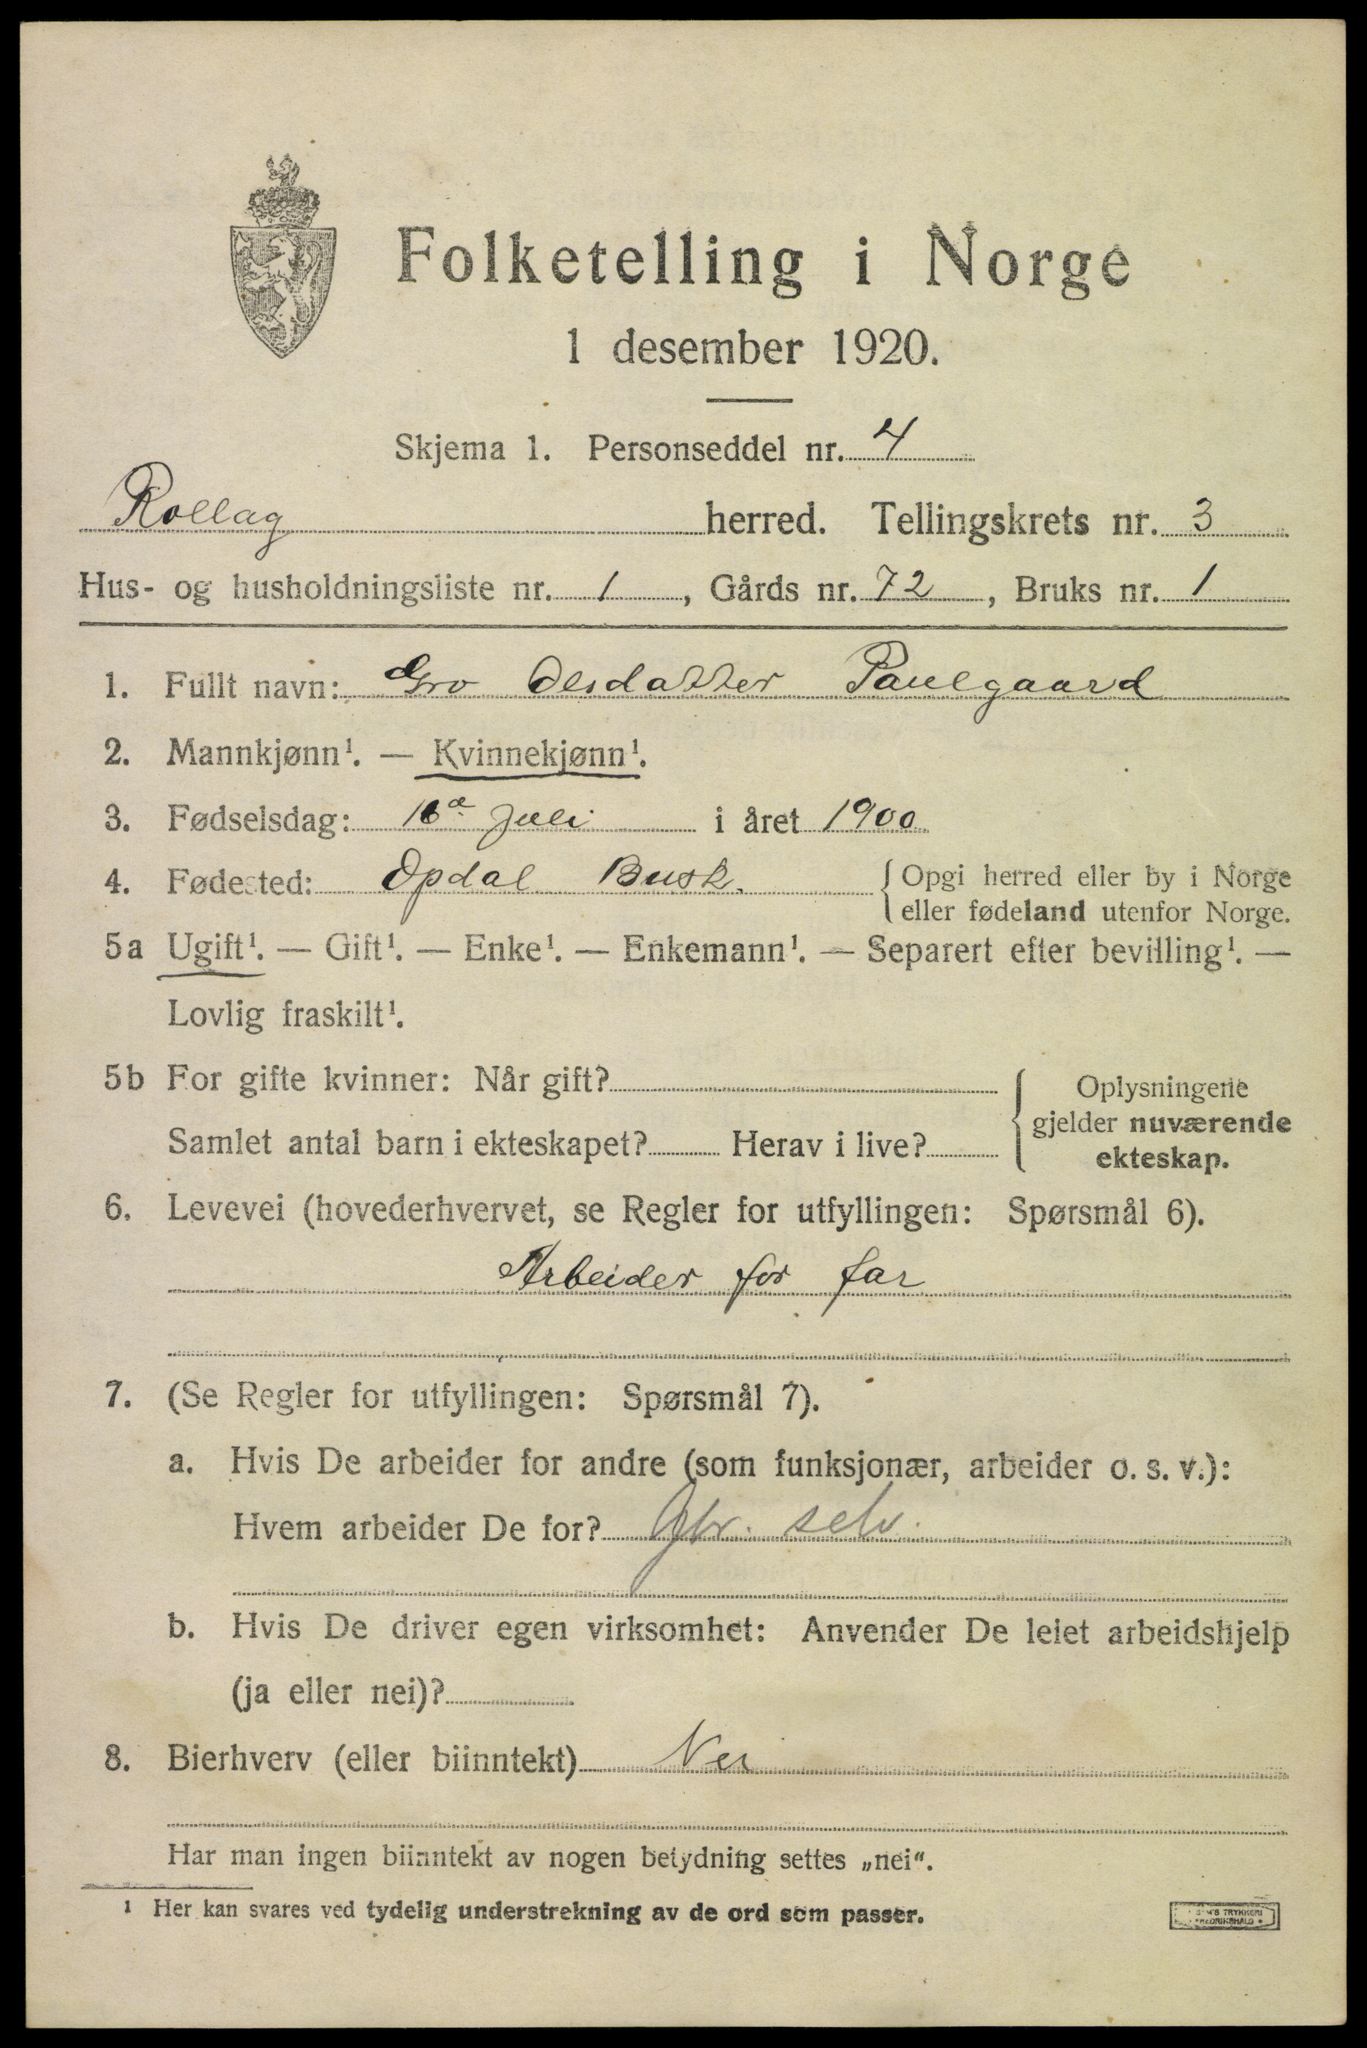 Folketelling i Norge
1 desember 1920.
Skjema 1. Personseddel nr. 4
Rollag herred. Tellingskrets nr. 3
Hus- og husholdningsliste nr. 1, Gårds nr. 72, Bruks nr. 1
1. Fullt navn: Gro Olsdatter Paulgaard
2. Mannkjønn¹. — Kvinnekjønn¹.
3. Fødselsdag: 16de Juli i året 1900
4. Fødested: Opdal Busk. { Opgi herred eller by i Norge
eller fødeland utenfor Norge.
5a Ugift¹. — Gift¹. — Enke¹. — Enkemann¹. — Separert efter bevilling¹. —
Lovlig fraskilt¹.
5b For gifte kvinner: Når gift?
Samlet antal barn i ekteskapet? Herav i live?
{ Oplysningene
gjelder nuværende
ekteskap.
6. Levevei (hovederhvervet, se Regler for utfyllingen: Spørsmål 6).
Arbeider for far
7. (Se Regler for utfyllingen: Spørsmål 7).
a. Hvis De arbeider for andre (som funksjonær, arbeider o. s. v.):
Hvem arbeider De for? Gbr. selv.
b. Hvis De driver egen virksomhet: Anvender De leiet arbeidshjelp
(ja eller nei)?
8. Bierhverv (eller biinntekt) Nei
Har man ingen biinntekt av nogen betydning settes „nei“.
¹ Her kan svares ved tydelig understrekning av de ord som passer.
TRYKKERI